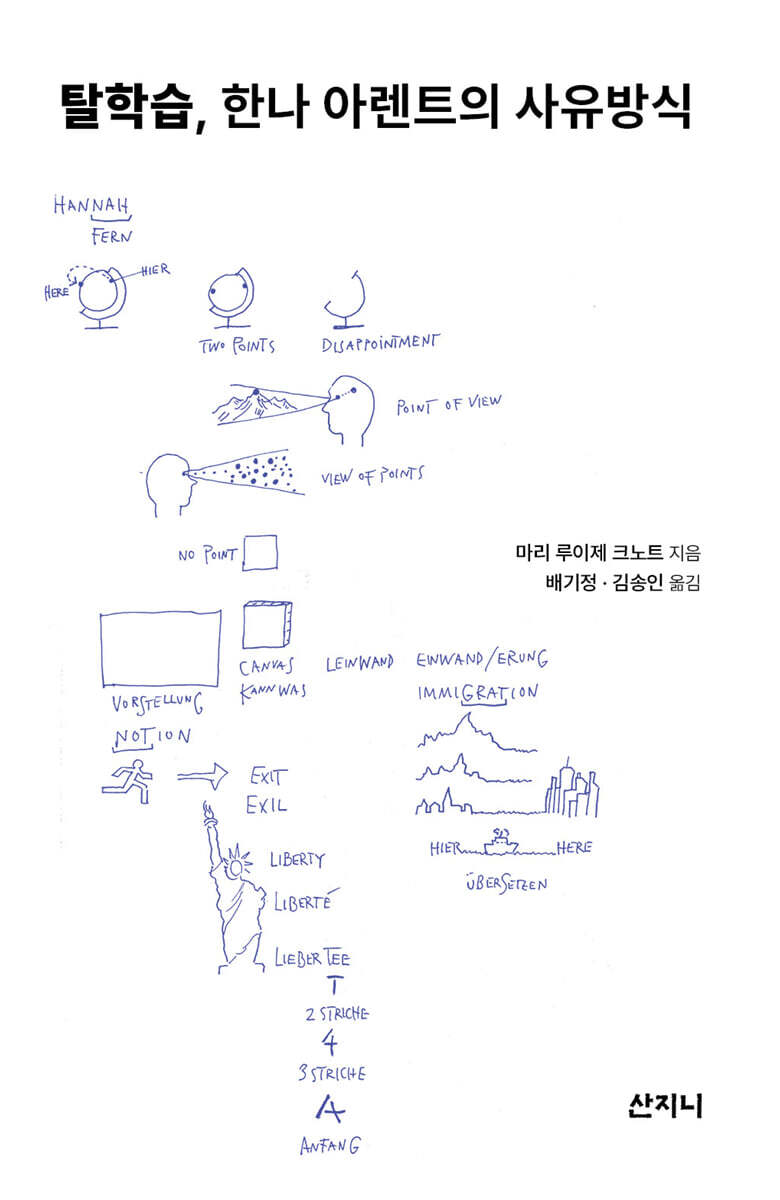 탈학습, 한나 아렌트의 사유방식
HANNAH
FERN
HERE
HIER
TWO POINTS
DISAPPOINTMENT
POINT OF VIEW
VIEW OF POINTS
NO POINT
마리 루이제 크노트 지음
배기정 · 김송인 옮김
CANVAS
KANNWAS
LEINWAND
EINWAND/ERUNG
IMMIGRATION
VORSTELLUNG
NOTION
EXIT
EXIL
HIER
HERE
ÜBERSETZEN
LIBERTY
LIBERTÉ
LIEBER TEE
T
2 STRICHE
4
3 STRICHE
A
ANFANG
산지니